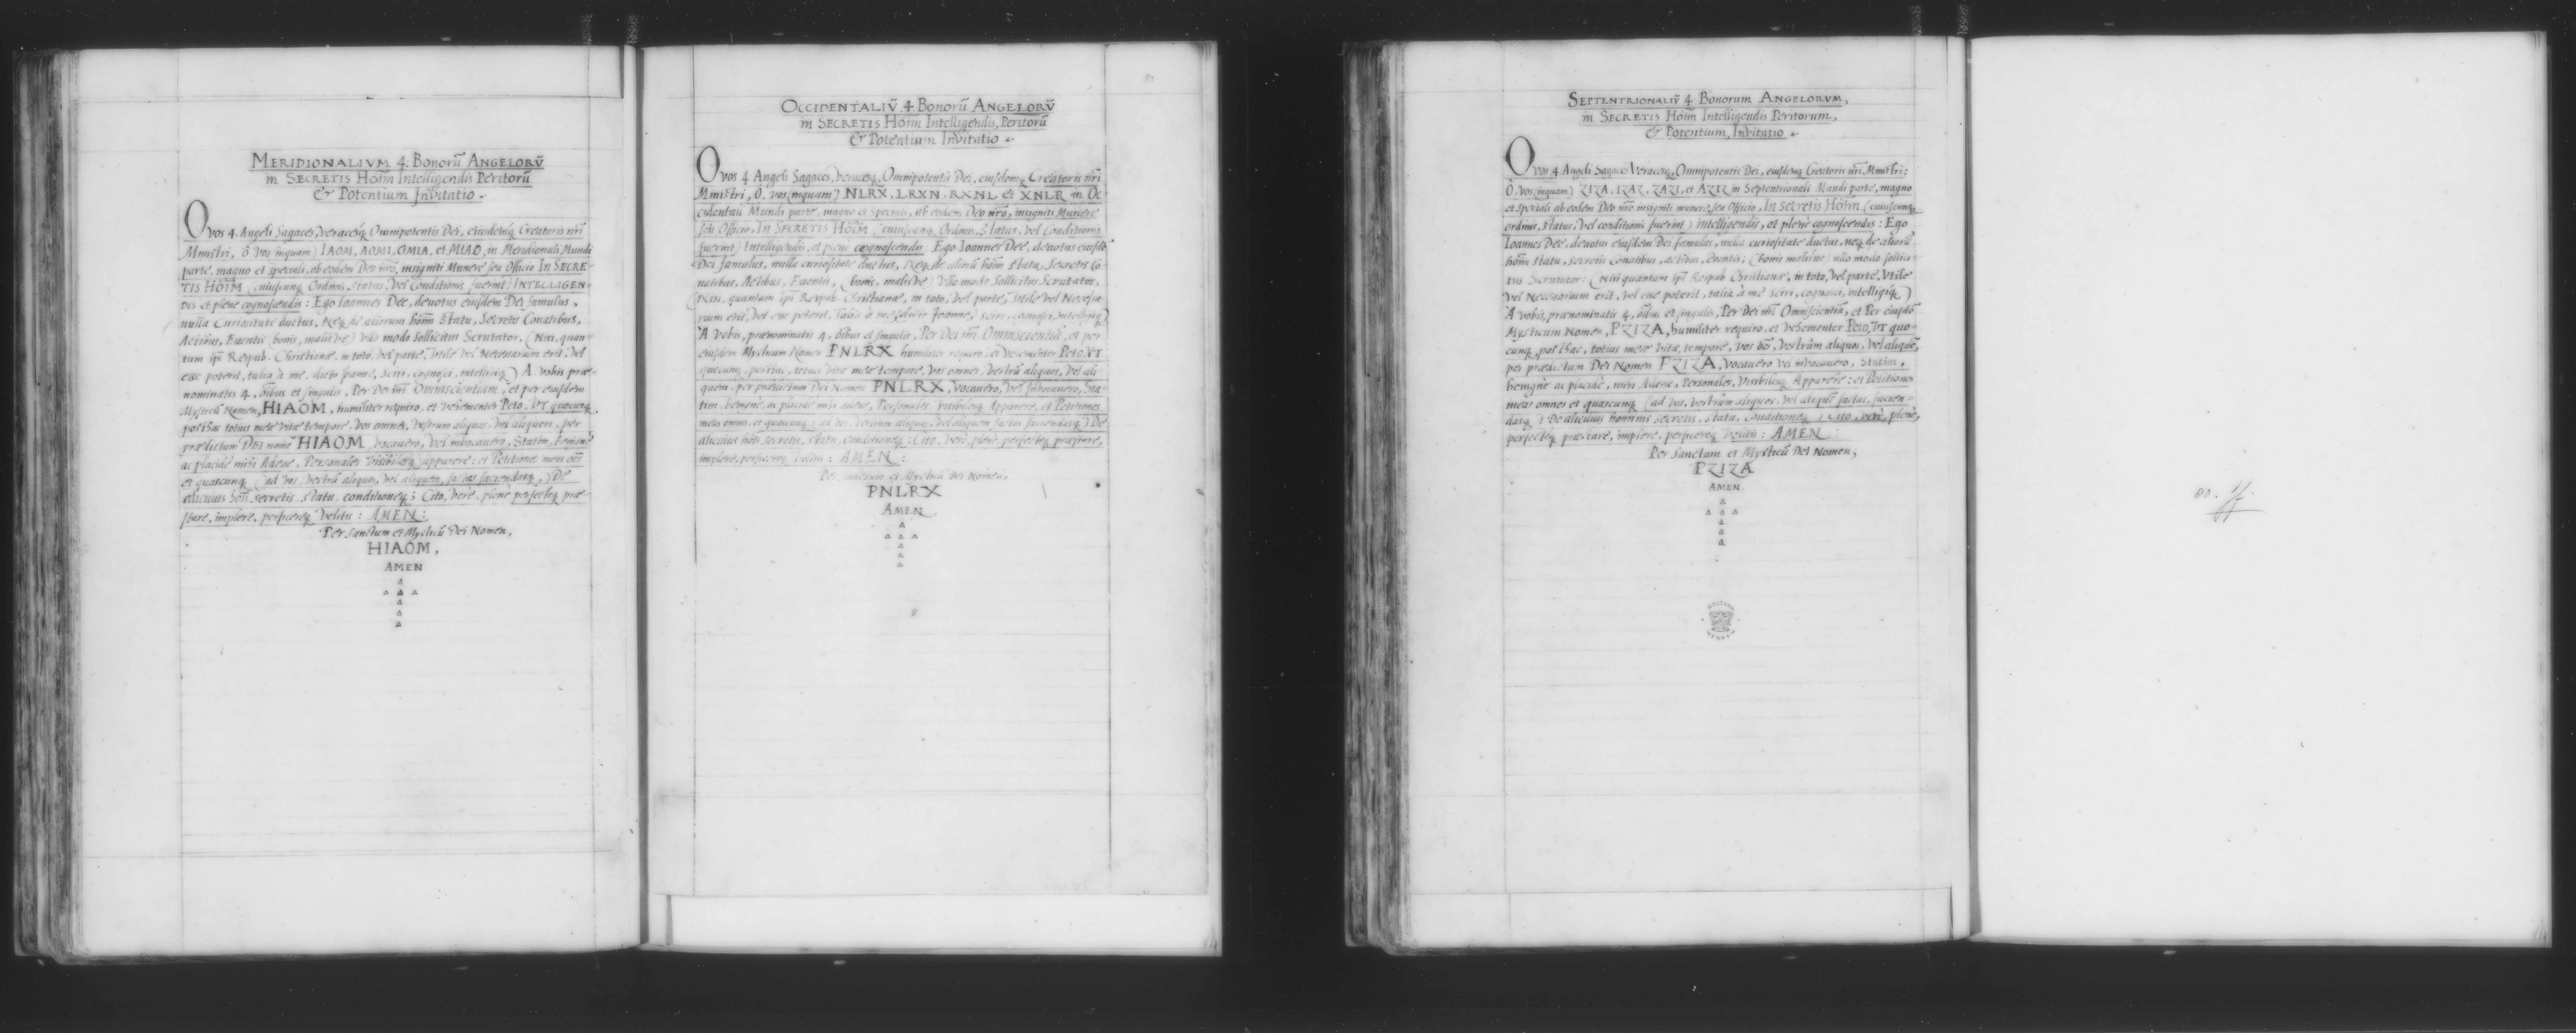 MERIDIONALIVM 4. Bonorū ANGELORV̄
in SECRETIS Hoīm Intelligendis Peritorū
& Potentium Invitatio.
O vos 4. Angeli Sagaces, veracesq, Omnipotentis Dei, eiusdemq Creatoris nr̄i
Ministri, ô vos (inquam) IAOM, AOMI, OMIA, et MIAO, in Meridionali Mundi
parte, magno et speciali, ab eodem Deo nr̄o, insigniti Munere seu Officio IN SECRE-
TIS HOĪM (cuiuscunq Ordinis Status, vel Conditionis fuerint) INTELLIGEN-
DIS et plene cognoscendis: Ego Ioannes Dee, devotus eiusdem Dei famulus,
nulla Curiositate ductus, Neq de aliorum hoīm Statu, Secretis Conatibus,
Actibus, Euentis (bonis, malisve) vllo modo Sollicitus Scrutator, (Nisi, quan-
tum ipī Reipub. Christianæ, in toto, vel parte, vtile vel Necessarium erit, vel
esse poterit, talia à me, dicto Ioanne, sciri, cognosci, intelligiq) A vobis præ-
nominatis 4, oībus et singulis, Per Dei nr̄i Omniscientiam, et per eiusdem
Mysticū Nomen, HIAOM, humiliter requiro, et vehementer Peto, VT quocunq,
posthac totius meæ vitæ tempore, vos omnes, vestrum aliquos, vel aliquem, per
prædictum Dei nomē HIAOM, vocauero, vel invocauero, Statim, benignè
ac placidè mihi Adesse, Personales visibilesq apparere: et Petitiones meas oēs
et quascunq (ad vos, vestrū aliquos, vel aliquem, factas faciendasq,) De
alicuius hoīs secretis, statu, conditioneq; Cito, verè, plenè perfecteq præ-
stare, implere, perficereq velitis: AMEN:
Per Sanctum et Mysticū Dei Nomen,
HIAOM,
AMEN
OCCIDENTALIV̄ 4. Bonorū ANGELORV̄
in SECRETIS Hoīm Intelligendis, Peritorū
& Potentium Invitatio
O vos 4 Angeli Sagaces, veracesq, Omnipotentis Dei, eiusdemq Creatoris nr̄i
Ministri, O, vos (inquam) NLRX, LRXN, RXNL et XNLR in Oc-
cidentali Mundi parte, magno et speciali, ab eodem Deo nr̄o, insigniti Munere
seu Officio, IN SECRETIS HOĪM (cuiuscunq Ordinis, Status, vel Conditionis
fuerint) Intelligendis, et plenè cognoscendis: Ego Ioannes Dee, devotus eiusdē
Dei famulus, nulla curiositate ductus, Neq de aliorū hoīm statu, Secretis Co-
natibus, Actibus, Euentis, (bonis, malisve) Vllo modo Sollicitus Scrutator,
(Nisi, quantum ipī Reipub. Christianæ, in toto, vel parte, vtile vel Necessa-
rium erit, vel esse poterit, Talia à me, dicto Joanne, sciri, cognosci, intelligiq)
A vobis, prænominatis 4, oībus et singulis, Per Dei nr̄i Omniscientiā, et per
eiusdem Mysticum Nomen PNLRX humiliter requiro, et vehementer Peto, VT
quocunq, posthac, totius vitæ meæ tempore, vos omnes, vestrū aliquos, vel ali-
quem, per prædictum Dei Nomen PNLRX, Vocauero, vel invocauero, Sta-
tim, benignè, ac placidè mihi adesse, Personales, visibilesq Apparere, et Petitiones
meas omnes, et quascunq (ad vos, vestrum aliquos, vel aliquem factas faciendasq) De
alicuius hoīs secretis, statu, conditioneq: Cito, verè, plenè perfecteq præstare,
implere, perficereq velitis: AMEN:
Per Sanctum et Mysticū Dei Nomen,
PNLRX
AMEN
SEPTENTRIONALIV̄ 4. Bonorum ANGELORVM,
in SECRETIS Hoīm Intelligendis Peritorum,
& Potentium, Invitatio
O vos 4 Angeli Sagaces Veracesq, Omnipotentis Dei, eiusdemq Creatoris nr̄i Ministri:
O, vos (inquam) ZIZA, IZAZ, ZAZI, et AZIZ in Septentrionali Mundi parte, magno
et speciali ab eodem Deo nr̄o insigniti munere, seu Officio, In Secretis Hoīm (cuiuscunq
ordinis, status, vel conditionis fuerint) intelligendis, et plenè cognoscendis: Ego
Ioannes Dee, devotus eiusdem Dei famulus, nulla curiositate ductus, neq de aliorū
hoīm statu, secretis Conatibus, actibus, eventis; (bonis malisve) ullo modo sollici-
tus Scrutator: (Nisi quantum ipī Reipub Christianæ, in toto, vel parte, Vtile
vel Necessarium erit, vel esse poterit, talia à me sciri, cognosci, intelligiq)
A vobis, prænominatis 4, oībus et singulis, Per Dei nr̄i Omniscientiā, et Per eiusdē
Mysticum Nomen, PZIZA, humiliter requiro, et vehementer Peto, VT quo-
cunq, posthac, totius meæ vitæ, tempore, vos oēs, vestrūm aliquos, vel aliquē,
per prædictum Dei Nomen PZIZA, Vocauero vel invocauero, Statim,
benignè ac placidè, mihi Adesse, Personales, Visibilesq Apparere: et Petitiones
meas omnes et quascunq (ad vos, vestrûm aliquos, vel aliquē factas, facien-
dasq) De alicuius hominis secretis, statu, Conditioneq: Cito, verè, plenè,
perfecteq præstare, implere, perficereq velitis: AMEN
Per Sanctum et Mysticū Dei Nomen,
PZIZA
AMEN